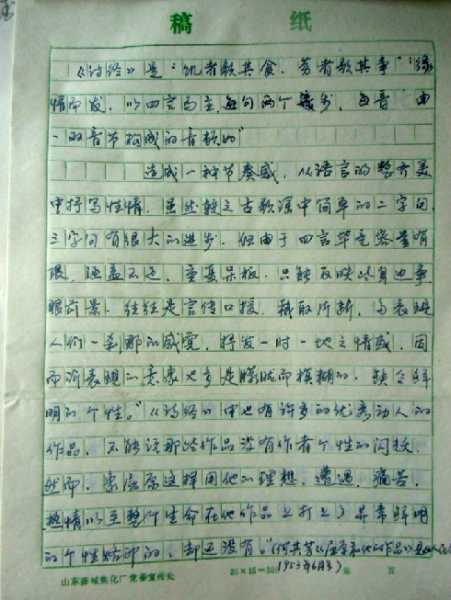 稿 纸
《诗经》是“饥者歌其食，劳者歌其事”“缘
情而发，以四言为主，每句两个 步，每音 由
一 的音节构成的音顿的”
造成一种节奏感，从语言的整齐美
中抒写性情，虽然较之古歌谣中简单的二字句、
三字句有很大的进步，但由于四言毕竟容量有
限， 重复呆板，只能反映些身边事
眼前景，往往是言传口授， 取所 ，与表现
人们一刹那的感觉，抒发一时一地之情感，因
而所表现的意象也多是朦胧而模糊的，缺乏鲜
明的个性。”《诗经》中也有许多的优秀动人的
作品，不能说那些作品没有作者个性的闪技，
然而，像屈原这样用他的理想、遭遇、痛苦、
热情以至整个生命在他作品上打上了异常鲜明
的个性 印的，却还没有。”（何其芳《屈原和他的作品》
1953年6月
山东 城焦化厂党委宣传处
20×15=300
页